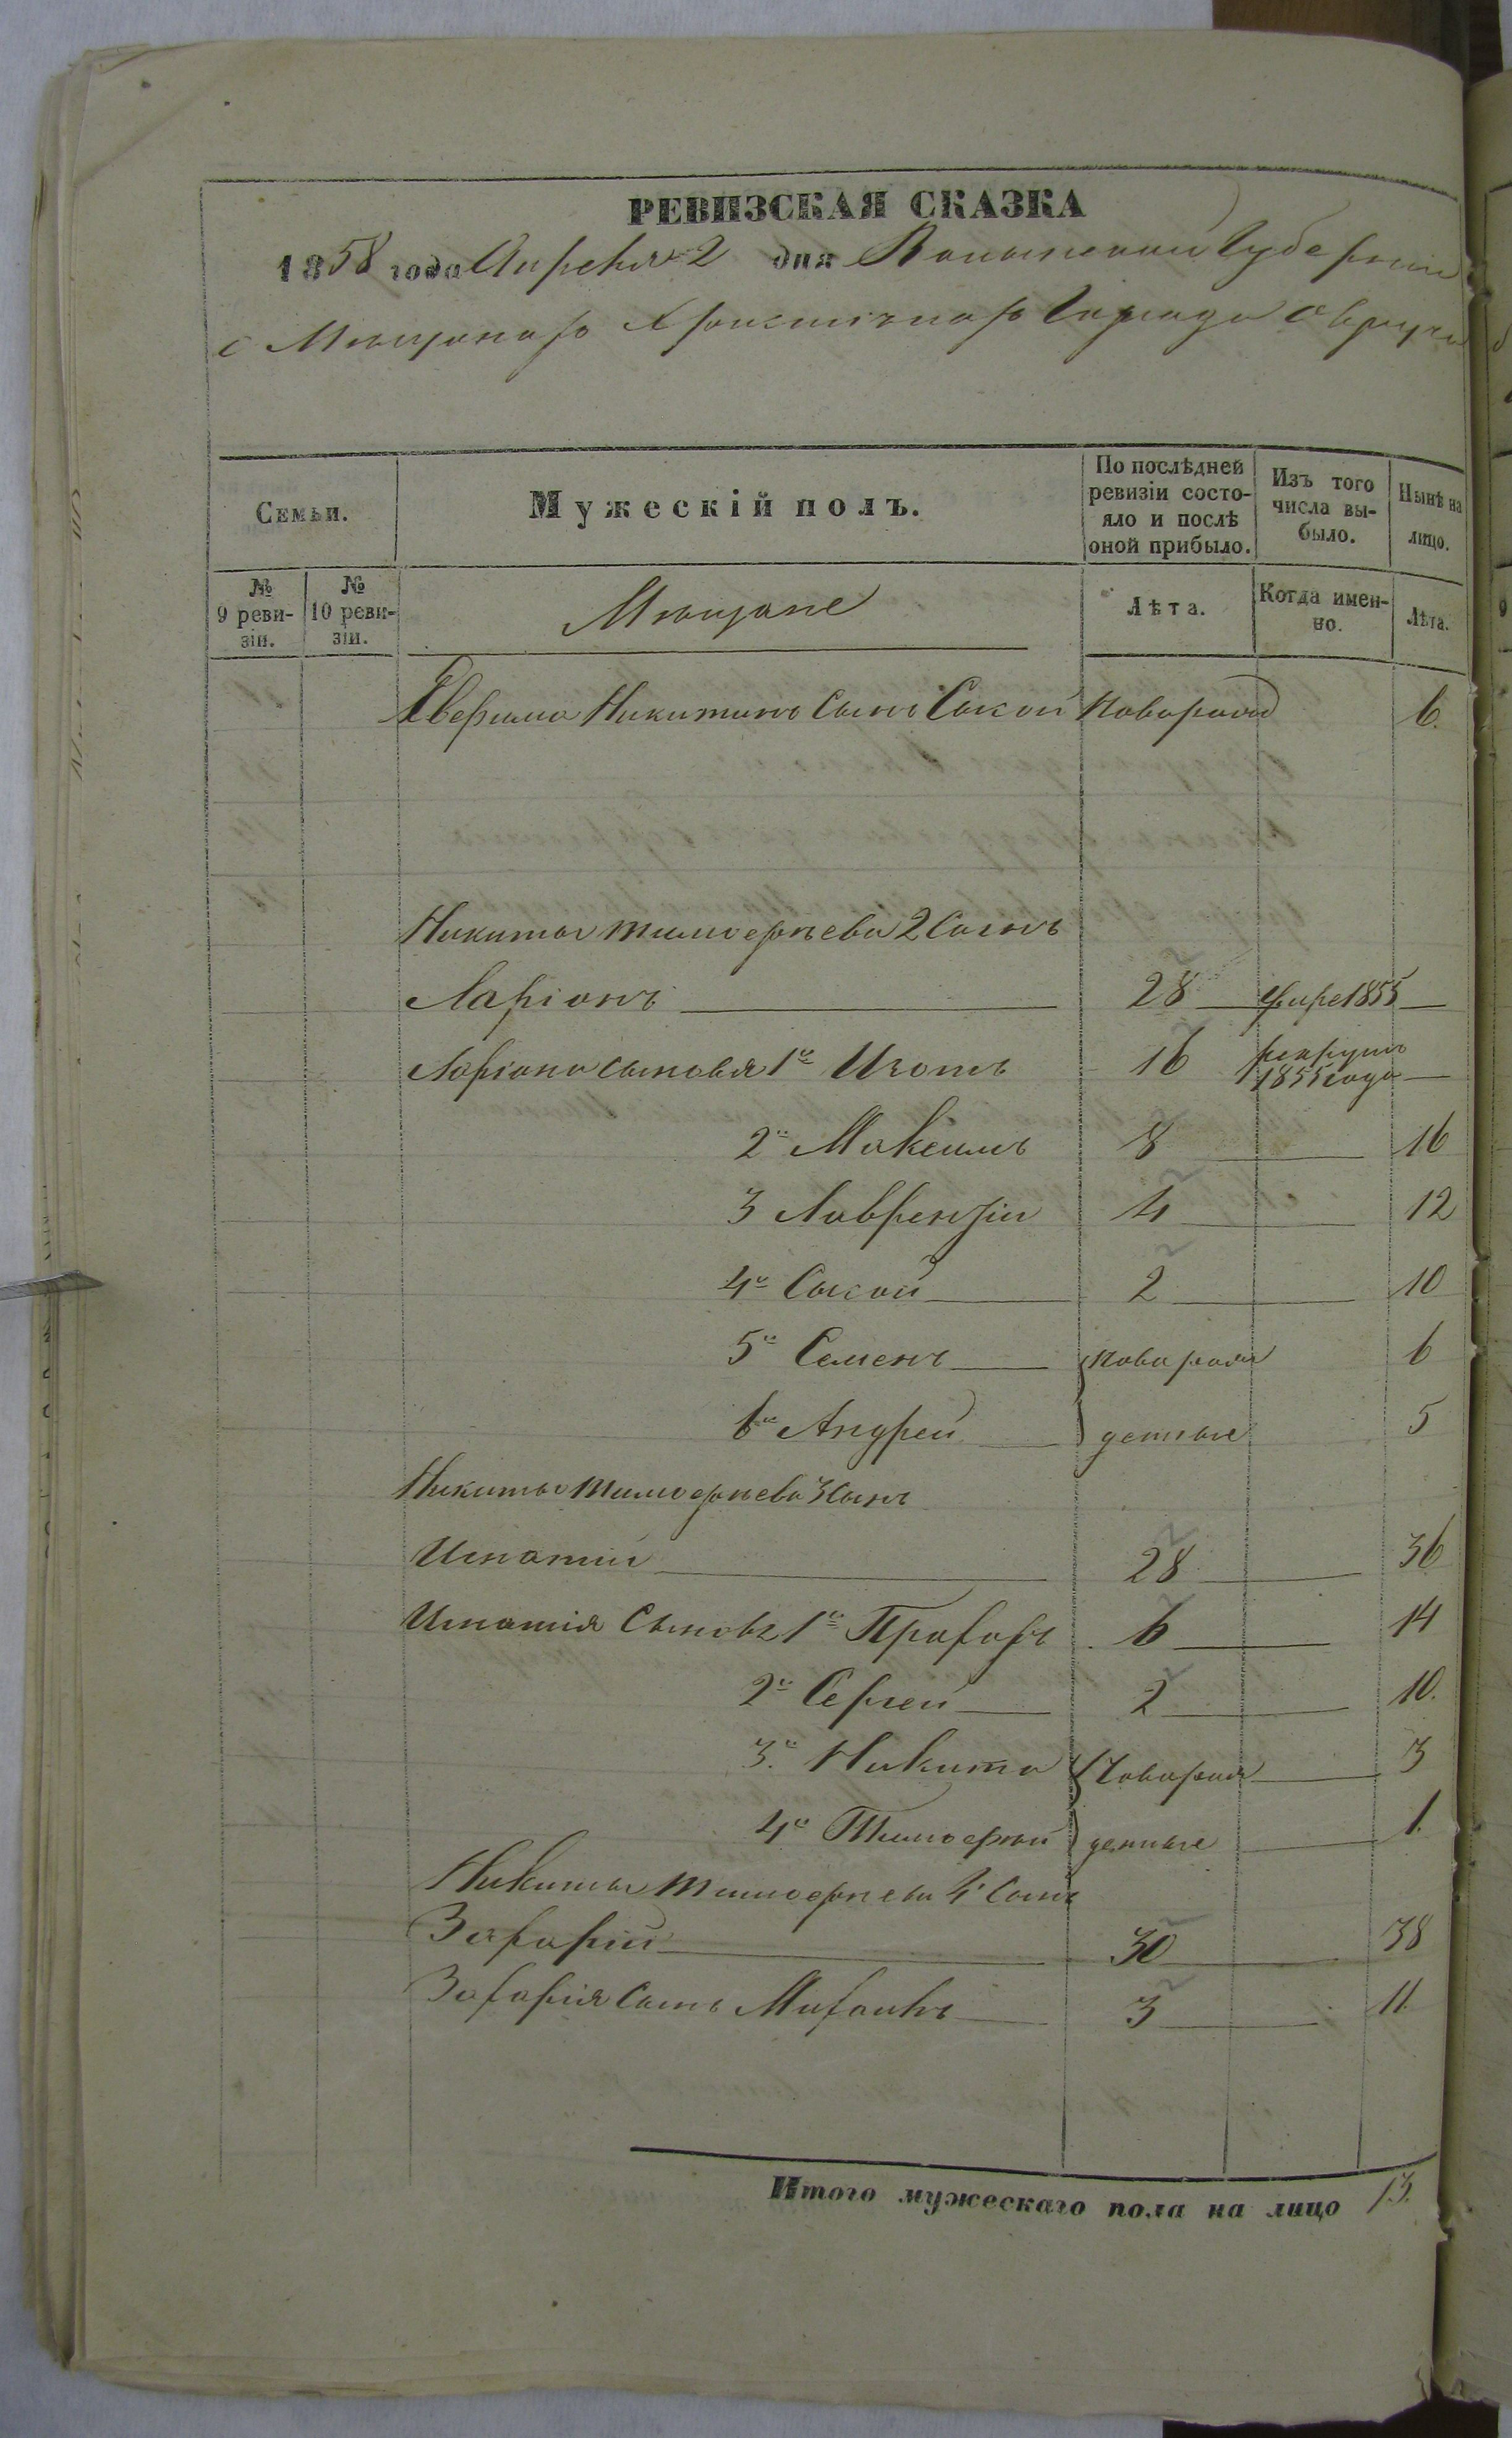 РЕВИЗСКАЯ СКАЗКА
1858 года Апреля 2 дня Волынской Губернии
о Мещанахъ Христіянахъ Города Овруча
Семьи.
Мужескій полъ.
По послѣдней ревизіи состо-
яло и послѣ
оной прибыло.
Изъ того
числа вы-
было.
Нынѣ на
лицо.
№
9 реви-
зіи.
№
10 реви-
зіи.
Мещане
Лѣта.
Когда имен-
но.
Лѣта.
Никитинъ Сынъ Сысой Новорож 6.
Никиты Тимоѳѣева 2 Сынъ
Ларіонъ 28 Умре 1855
Ларіона сыновья 1й Изотъ 16 рекрутъ
1855 года
2й Максимъ 8 16
3 Лаврентій 4 12
4й Сысой 2 10
5й Семенъ новорож 6
6й Андрей денные 5
Никиты Тимоѳѣева 3 Сынъ
Игнатій 28 36
Игнатія Сыновья 1й Прохоръ 6 14
2й Сергей 2 10.
3й Никита Новорож 3
4й Тимоѳей денные 1.
Никиты Тимоѳѣева 4 Сынъ
Захарій 30 38
Захарія Сынъ Михаилъ 3 11.
Итого мужескаго пола на лицо 13.